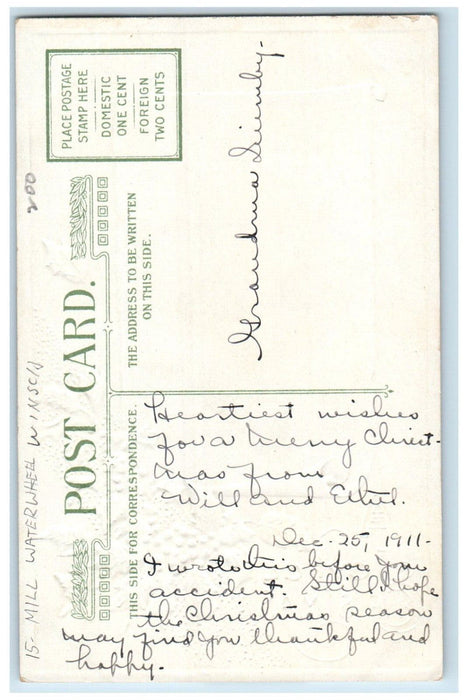 PLACE POSTAGE
STAMP HERE
DOMESTIC
ONE CENT
FOREIGN
TWO CENTS
200
POST CARD.
THE ADDRESS TO BE WRITTEN
ON THIS SIDE.
THIS SIDE FOR CORRESPONDENCE.
15- MILL WATERWHEEL WINSCH
Grandma Quimby.
Heartiest wishes
for a Merry Christ-
mas from
Will and Ethel.
Dec. 25, 1911.
I wrote this before your
accident. Still I hope
the Christmas season
may find you thankful and
happy.